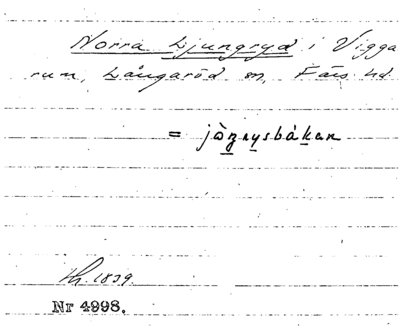 Norra Ljungryd i Vigga
rum, Långaröd sn, Färs hd.
= jòŋrysbákan
Nr 4998.